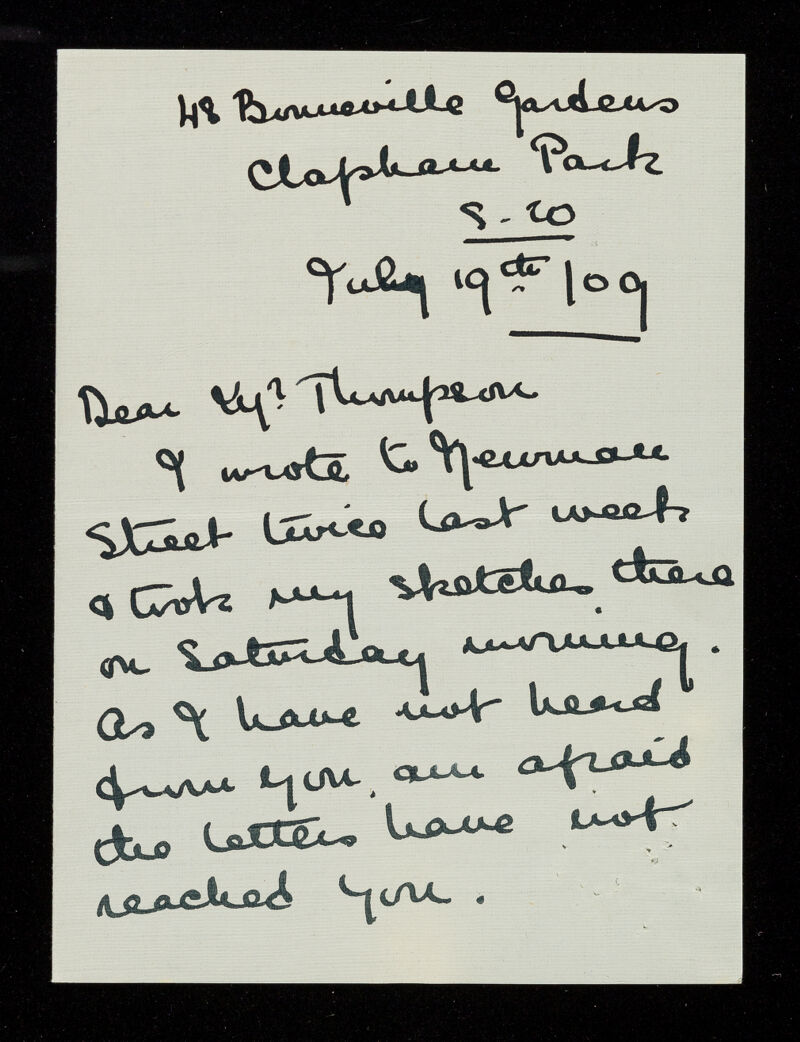 48 Bonneville Gardens
Clapham Park
S-W
July 19th /09
Dear Thompson
I wrote to Newman
Street twice last week
& took my sketches there
on Saturday morning.
As I have not heard
from you, am afraid
the letters have not
reached you.